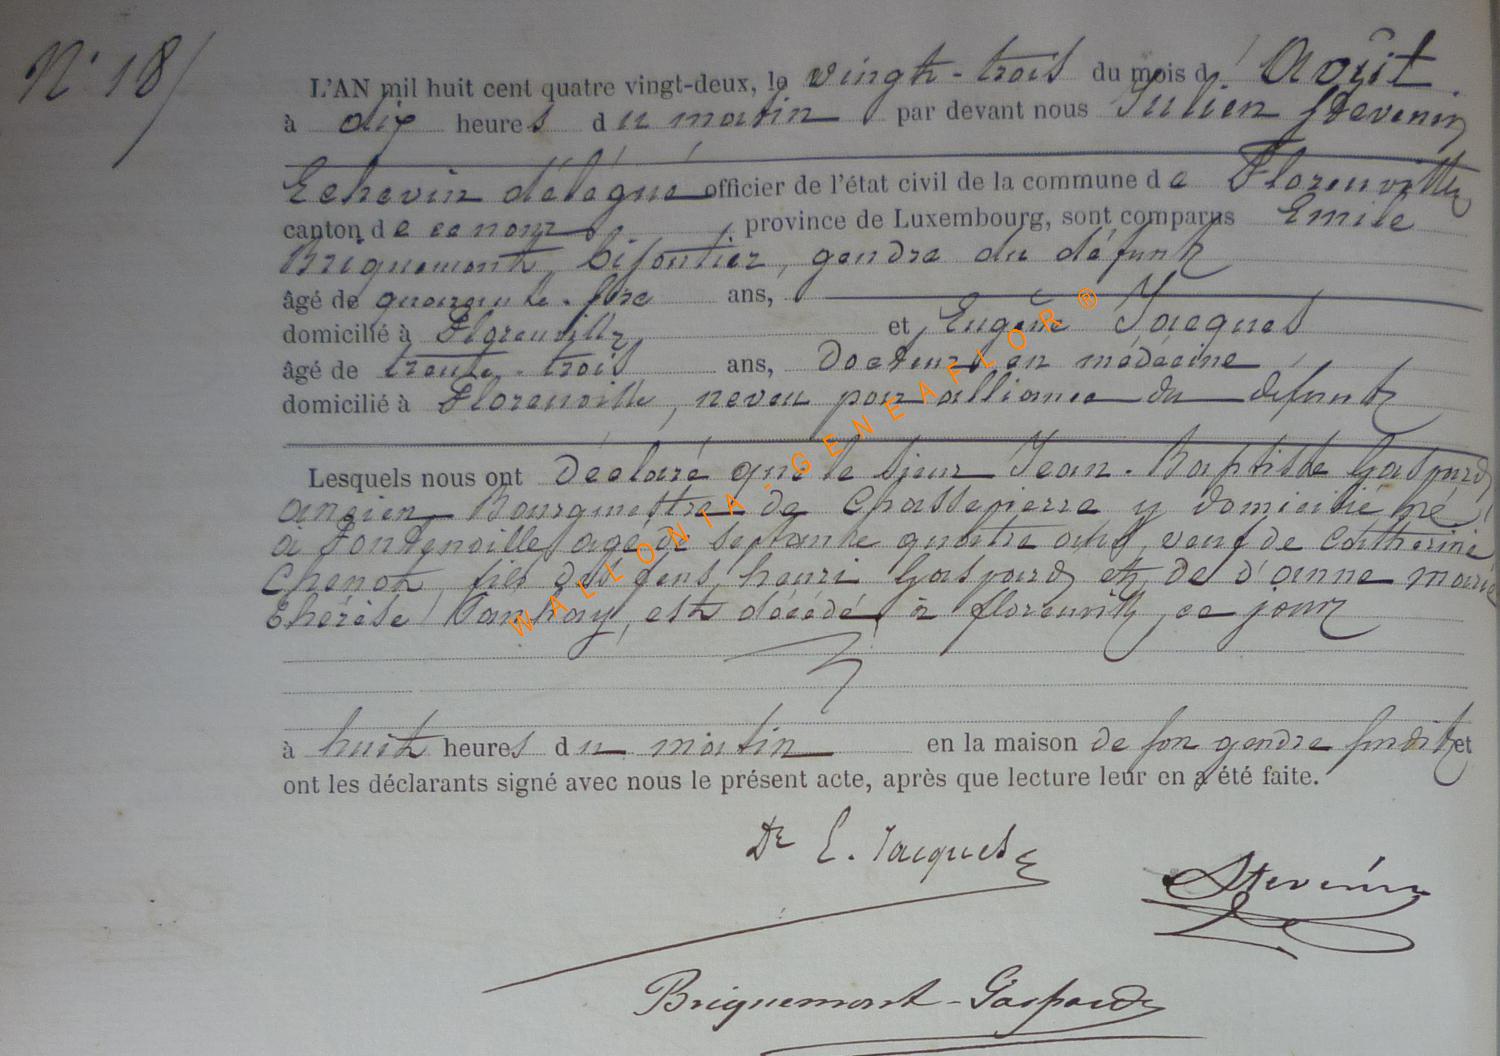 N° 18
L'AN mil huit cent quatre vingt-deux, le vingt-trois du mois d'Août
à dix heures du matin par devant nous Julien Stevenin
Echevin délégué officier de l'état civil de la commune de Florenville
canton de ce nom province de Luxembourg, sont comparus Emile
Briquemont, bijoutier, gendre du défunt
âgé de quarante- ans,
domicilié à Florenville et Eugène Jacques
âgé de trente-trois ans, Docteur en médécine
domicilié à Florenville, neveu par alliance du défunt
Lesquels nous ont Déclaré que le sieur Jean-Baptiste Gaspard
ancien Bourgmestre de Chassepierre y domicilié né
à Fontenoille, agé de septante quatre ans, veuf de Catherine
Chenot, fils des feus henri Gaspard et de d'anne marie
thérèse Tanhay, est décédé à florenville, ce jour
à huit heures du matin en la maison de son gendre susdit et
ont les déclarants signé avec nous le présent acte, après que lecture leur en a été faite.
Dr E. Jacques
Stevenin
Briquemont-Gaspard
WALLONIA-GENEAFLOR®